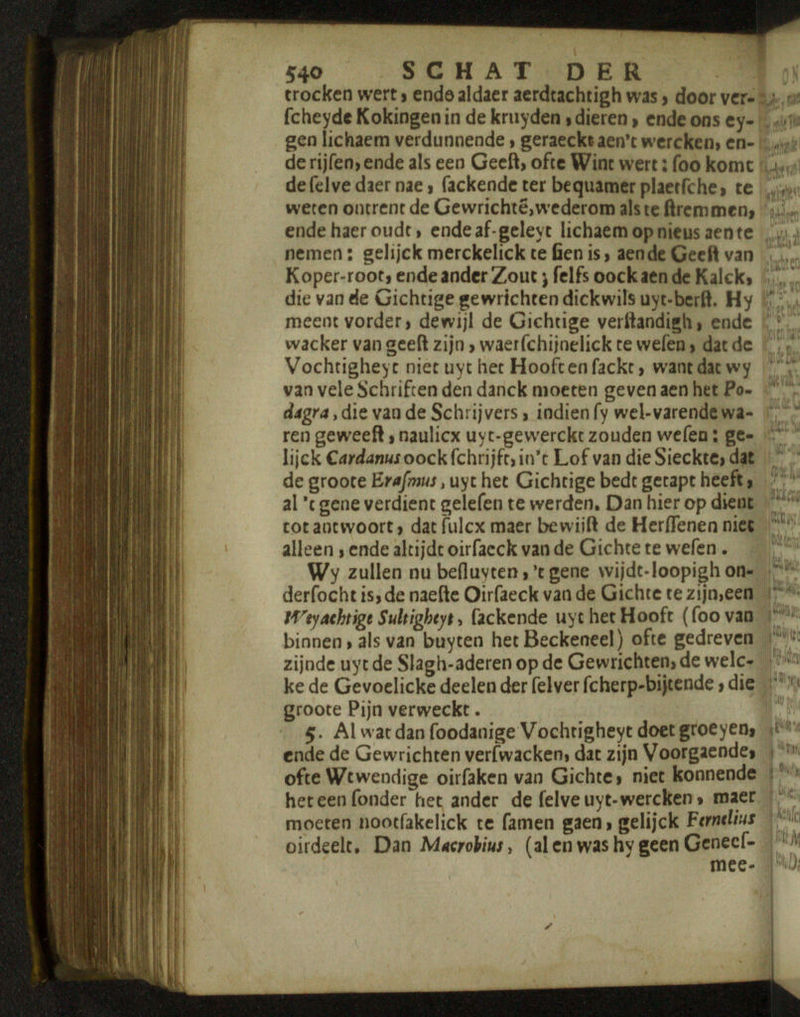 540 SCHAT DER
trocken wert, ende aldaer aerdtachtigh was, door ver-
ſcheyde Kokingen in de kruyden, dieren, ende ons ey-
gen lichaem verdunnende, geraeckt aen't wercken, en-
de rijſen, ende als een Geeſt, ofte Wint wert: ſoo komt
de ſelve daer nae, ſackende ter bequamer plaetſche, te
weten ontrent de Gewrichtẽ, wederom als te ſtremmen,
ende haer oudt, ende af-geleyt lichaem op nieus aen te
nemen: gelijck merckelick te ſien is, aen de Geeſt van
Koper-root, ende ander Zout; ſelfs oock aen de Kalck,
die van de Gichtige gewrichten dickwils uyt-berſt. Hy
meent vorder, dewijl de Gichtige verſtandigh, ende
wacker van geeſt zijn, waerſchijnelick te weſen, dat de
Vochtigheyt niet uyt het Hooft en ſackt, want dat wy
van vele Schriften den danck moeten geven aen het Po-
dagra, die van de Schrijvers, indien ſy wel-varende wa-
ren geweeſt, naulicx uyt-gewerckt zouden weſen: ge-
lijck Cardanus oock ſchrijft, in't Lof van die Sieckte, dat
de groote Eraſmus, uyt het Gichtige bedt getapt heeft,
al 't gene verdient geleſen te werden. Dan hier op dient
tot antwoort, dat ſulcx maer bewijſt de Herſſenen niet
alleen, ende altijdt oirſaeck van de Gichte te weſen.
Wy zullen nu beſluyten, 't gene wijdt-loopigh on-
derſocht is, de naeſte Oirſaeck van de Gichte te zijn, een
Weyachtige Sultigheyt, ſackende uyt het Hooft (ſoo van
binnen, als van buyten het Beckeneel) ofte gedreven
zijnde uyt de Slagh-aderen op de Gewrichten, de welc-
ke de Gevoelicke deelen der ſelver ſcherp-bijtende, die
groote Pijn verweckt.
5. Al wat dan ſoodanige Vochtigheyt doet groeyen,
ende de Gewrichten verſwacken, dat zijn Voorgaende,
ofte Wtwendige oirſaken van Gichte, niet konnende
het een ſonder het ander de ſelve uyt-wercken, maer
moeten nootſakelick te ſamen gaen, gelijck Fernelius
oirdeelt. Dan Macrobius, (al en was hy geen Geneeſ-
mee-